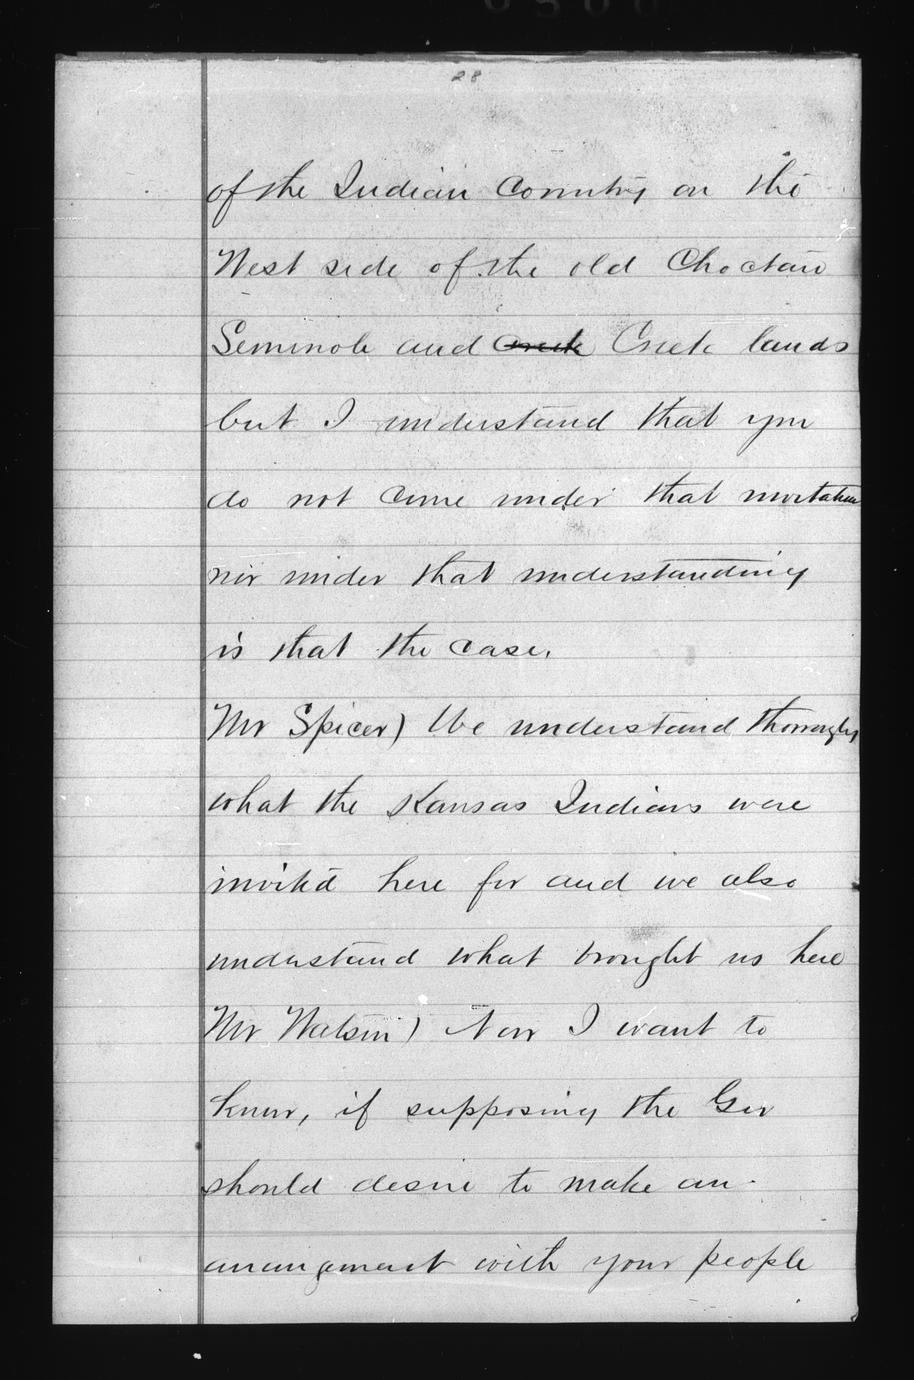 28
of the Indian Country on the
West side of the old Choctaw
Seminole and Creek Creek lands
but I understand that you
do not come under that invitation
nor under that understanding
is that the case.
Mr Spicer) We understand thoroughly
what the Kansas Indians were
invited here for and we also
understand what brought us here
Mr Watson) Now I want to
know, if supposing the Gov
should desire to make an
arrangement with your people